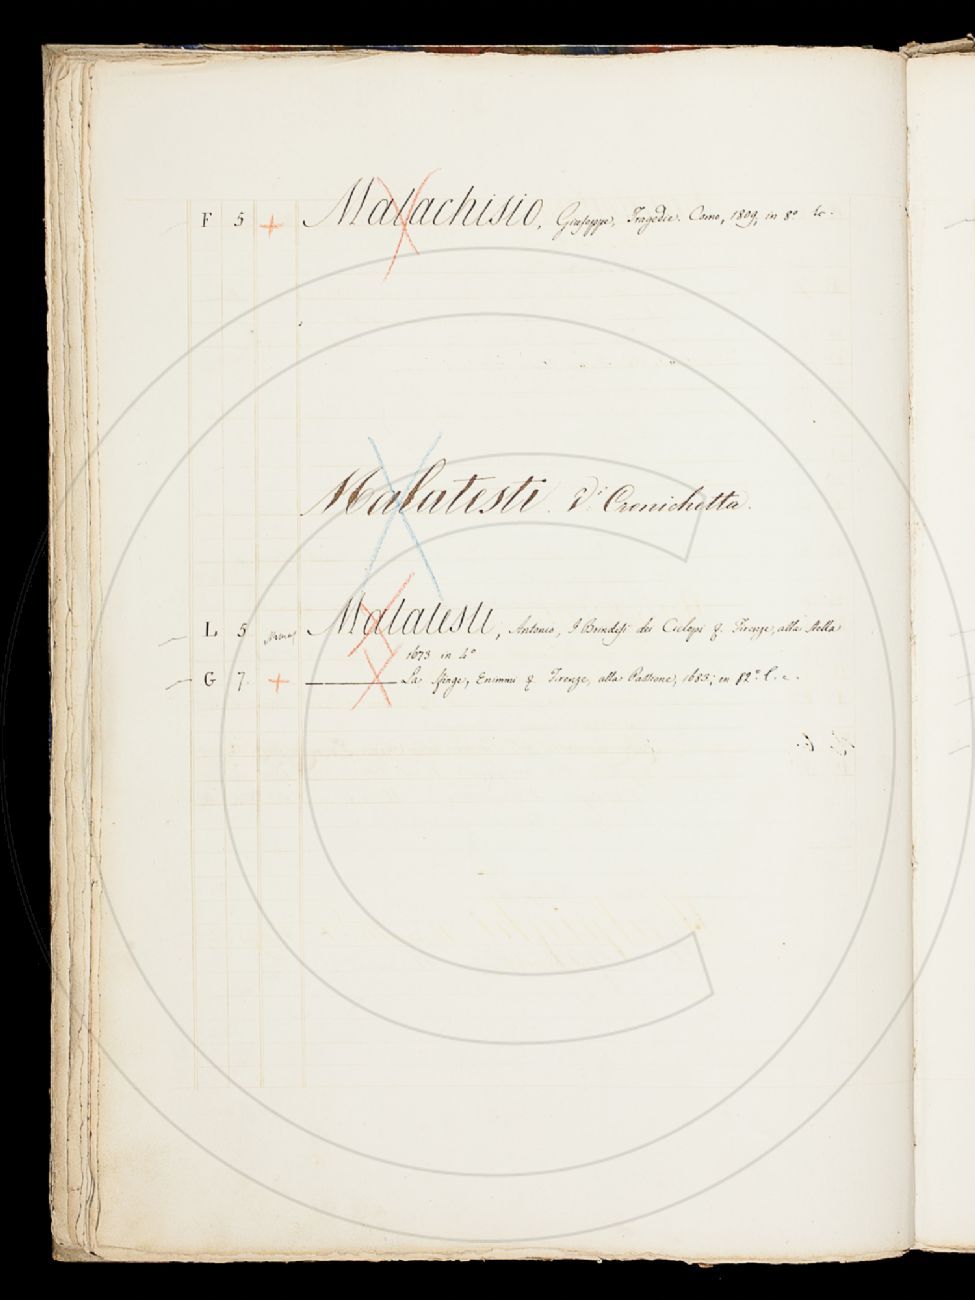 F 5 + Malachisio, Giuseppe, Tragedie. Como, 1809, in 8º
Malatesti. V. Cronichetta.
L 5 Malatesti, Antonio, I Brindisi dei Ciclopi &. Firenze, alla Stella
1673 in 4º
G 7. + ——— La Sfinge, Enimmi & Firenze, alla Passione, 1683; in 12º.